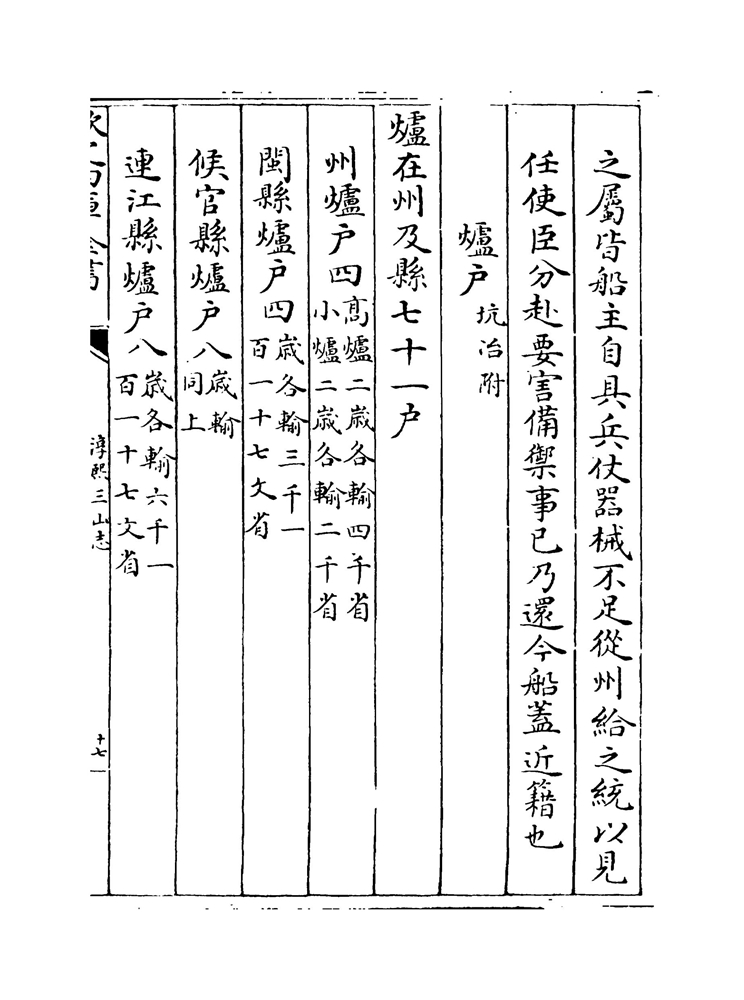 之屬皆船主自具兵仗器械不足從州給之統以見
任使臣分赴要害備禦事已乃還今船蓋近籍也
爐户坑冶附
爐在州及縣七十一户
州爐户四髙爐二歲各輸四千省
小爐二歲各輸二千省
閩縣爐户四歲各輸三千一
百一十七文省
候官縣爐户八歲輸
同上
連江縣爐户八歲各輸六千一
百一十七文省
淳熙三山志
十七